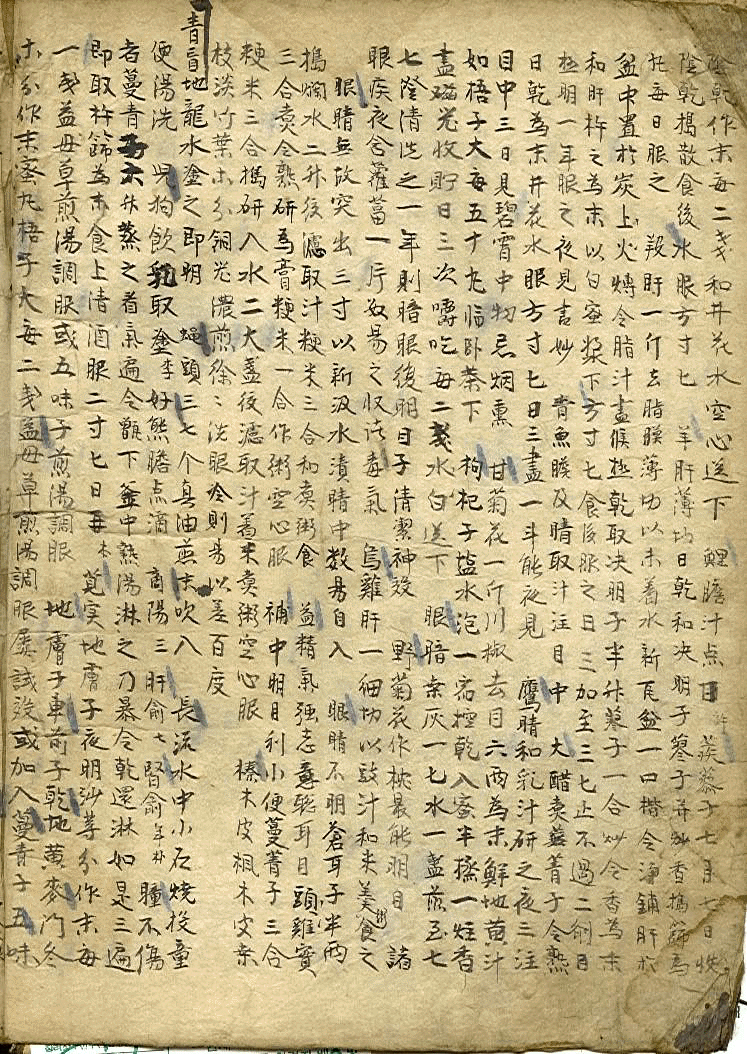 陰乾作末每二戔和井花水空心送下 鯉膽汁点目 蒺藜子七月七日收
陰乾搗散食後水服方寸匕 羊肝薄切日乾和决明子蓼子并炒香搗篩為
丸每日服之 羖肝一斤去脂膜薄切以未着水新瓦盆一口揩令淨鋪肝於
盆中置於炭上火煿令脂汁盡候極乾取决明子半升蓼子一合炒令香為末
和肝杵之為末以白蜜漿下方寸匕食後服之日三加至三匕止不過二劑目
極明一年服之夜見書妙 青魚膽及睛取汁注目中 大醋煮蔓菁子令熟
日乾為末井花水服方寸匕日三盡一斗能夜見 鷹睛和乳汁研之夜三注
目中三日見碧霄中物忌烟熏 甘菊花一斤川椒去目六兩為末鮮地黃汁
如梧子大每五十丸臨卧茶下 枸杞子塩水泡一宿控乾入蜜半 一炷香
盡磁 收貯日三次嚼吃每二戔水白送下 眼暗桑灰一七水一盞煎至七
七澄清洗之一年則暗眼後明目子清潔神效 野菊花作枕最能明目 諸
眼疾夜含蘿葍一片 湯之收 毒氣 烏雞肝一細切以豉汁和米 粥食之
眼睛無故突出三寸以新汲水漬睛中数易自入 眼睛不明蒼耳子半两
搗爛水二升後濾取汁粳米三合和煮粥食 益精氣强志 聡耳目頭雞實
三合煮令熟研為膏粳米一合作粥空心服 補中明目利小便蔓菁子三合
粳米三合搗研入水二大盞後濾取汁着米煮粥空心服 榛木皮楓木皮桒
枝淡竹葉ホ分銅光濃煎徐〻洗眼冷則易以差百度
青盲地龍水塗之即明 頭三七个真油煎末吹入 長流水中小石燒投童
便湯洗 兒狗飲乳取塗李好熊膽点滴 商陽三肝俞七腎俞年壮 腫不傷
者蔓青子六升蒸之着氣遍令甑下釜中熱湯淋之乃暴令乾還淋如是三遍
即取杵篩為末食上清酒服二寸匕日再 莧実地膚子夜明沙等分作末每
一戔益母草煎湯調服或五味子煎湯調服 地膚子車前子乾地黃麥門冬
ホ分作末蜜丸梧子大每二戔益母草煎湯調服屢試效或加入蔓青子五味